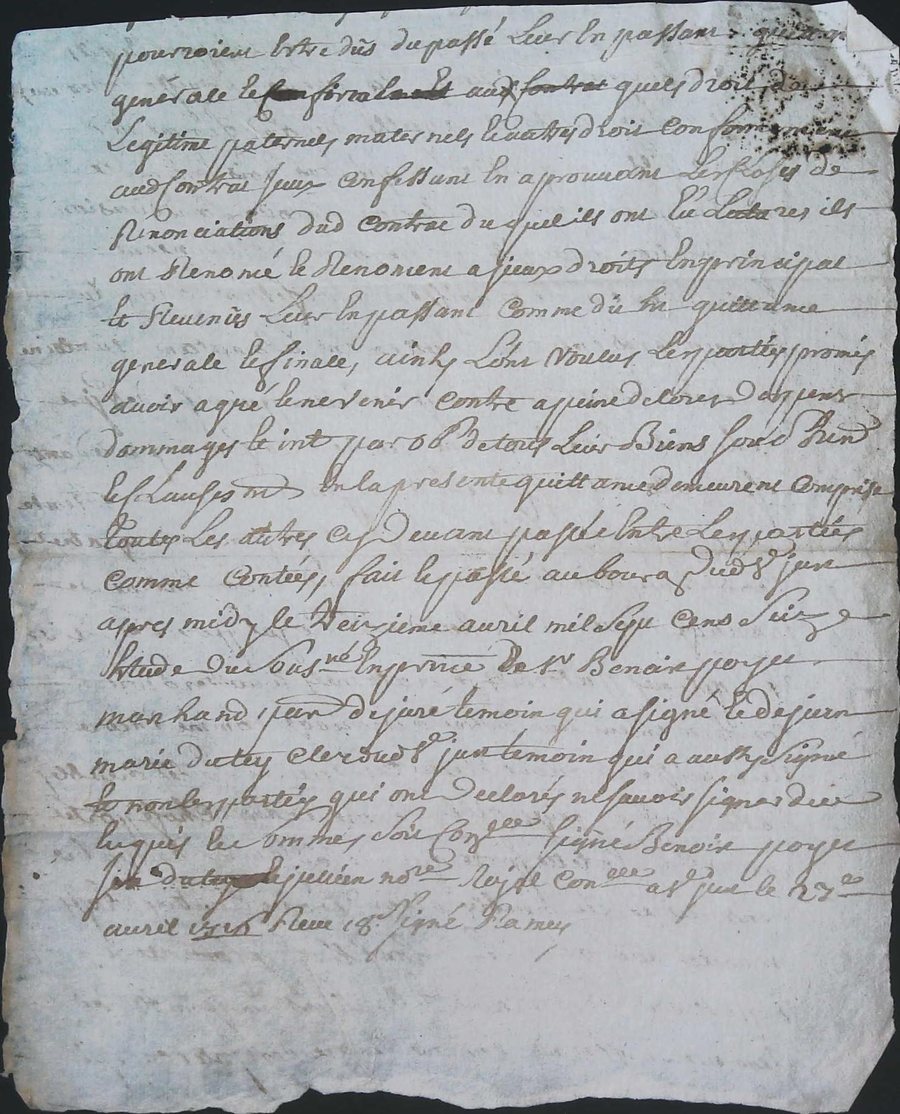 pourroient Estre dus du passé Leur En passant quittance
générale et aud quels droits de
Legitime paternels maternels et autres droit conformement
aud Contrat Iceux confessant En aprouvant Les Closes de
Renonciations dud Contrat duquel ils ont Eu Lecture ils
ont Renoncé et Renoncent a Iceux droits En principal
Et Revenus Leur En passant Comme dit Est quittance
generale et finale, ainsy L'ont Voulus Les parties promis
avoir a gré et ne venir Contre a peine de tous despens
dommages et int par ob de tous Leur Biens
et Clauses En la presente quittance demeurent comprise
toutes Les autres cy Devant passée Entre Les parties
comme contées, fait et passé au bourg dud St just
apres midy le avril mil Sept Cens Seize
Etude du Sousné En presence De Sr Benoist poyet
marchand de juré temoin qui a signé et de jean
marie dutey Clerc dud St just temoin qui a aussy Signé
Et non les parties qui ont declarés ne savoir signer de ce
Enquis et Sommes Soit Conllé signé Benoist poyet
dutey et julien nore Royal Conllé a St just le 27e
avril 1716 Receu 18s Signé Ramey